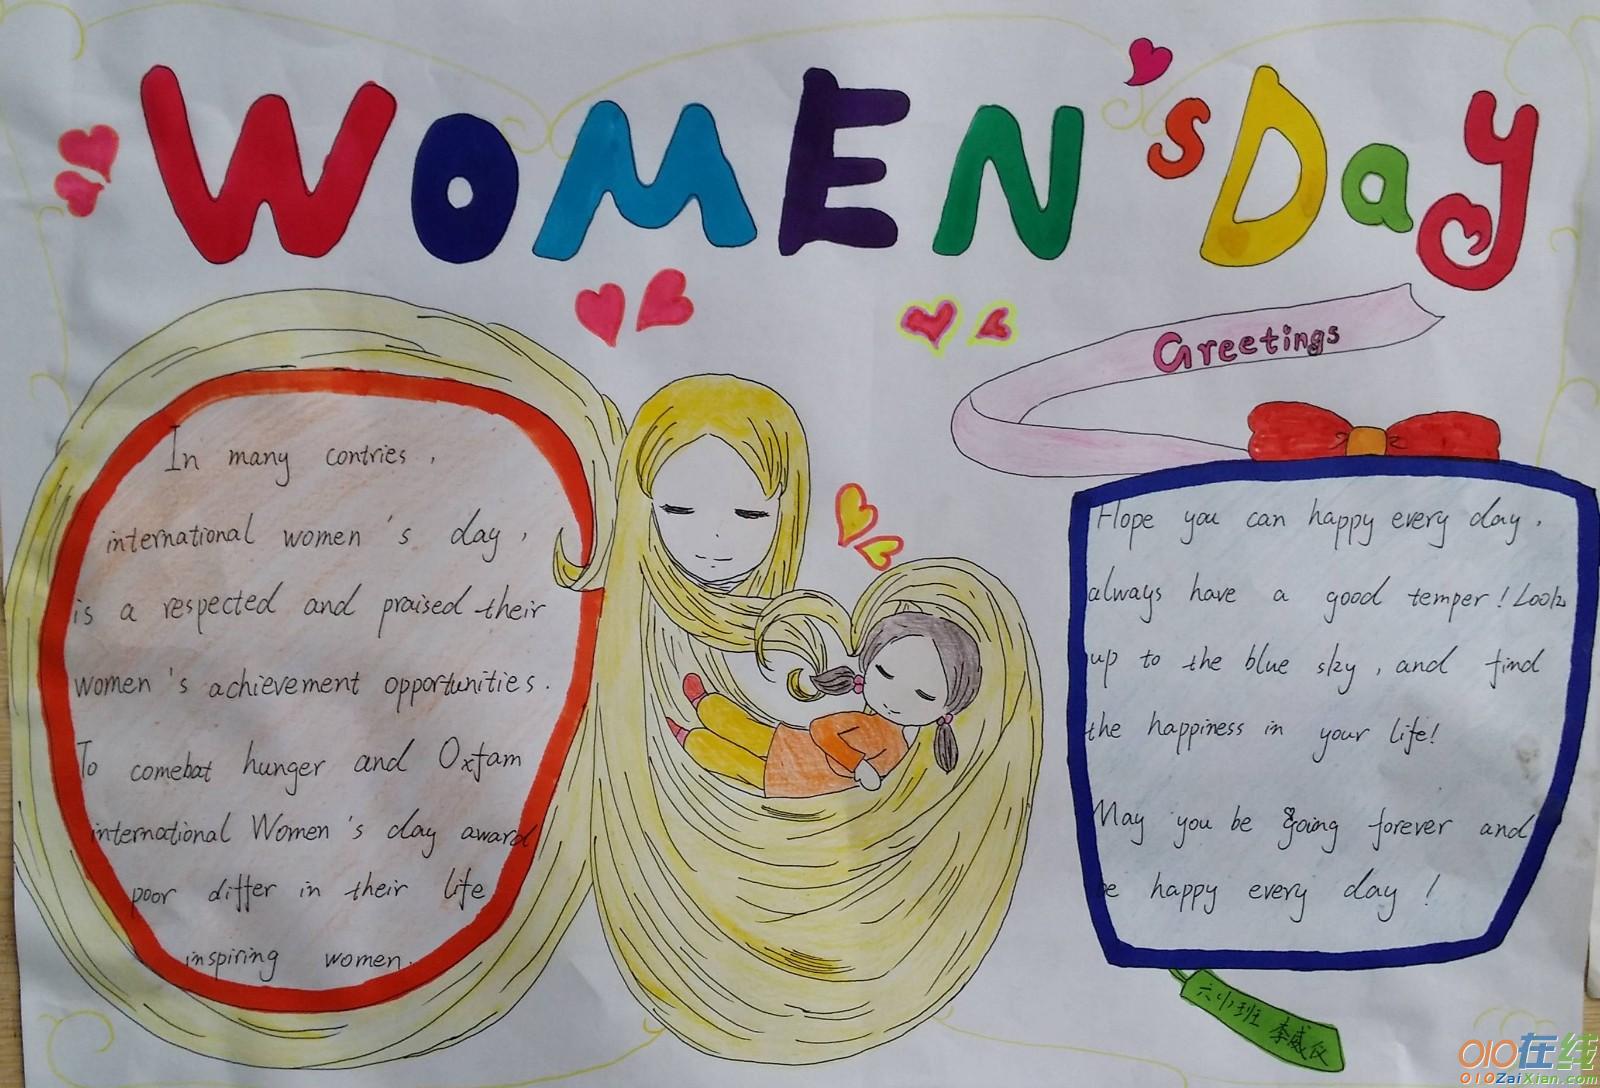 WOMEN'S Day
Greetings
In many contries,
international women's day,
is a respected and praised their
women's achievement opportunities.
To comebat hunger and Oxfam
international Women's day award
poor differ in their life
inspiring women.
Hope you can happy every day,
always have a good temper! Look
up to the blue sky, and find
the happiness in your life!
May you be going forever and
be happy every day!
六(1)班 李威仪
010在线
010ZaiXian.com